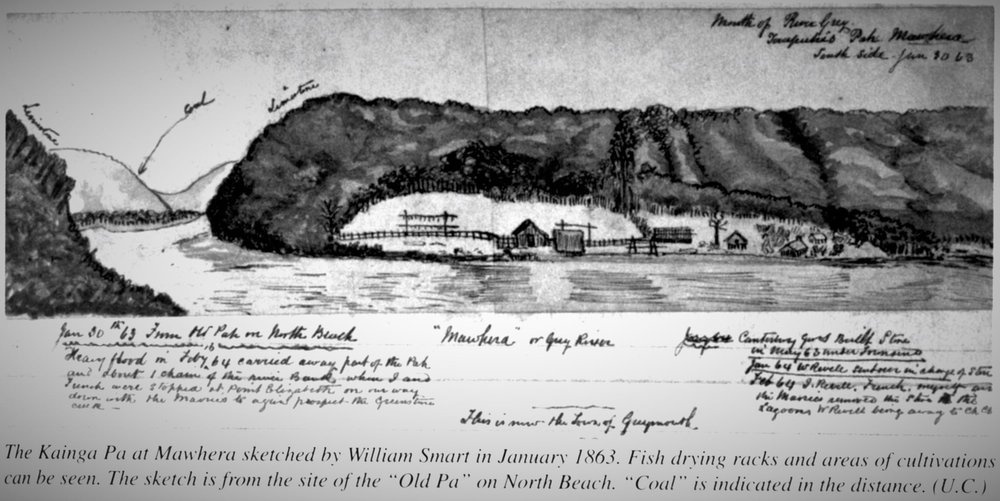 Mouth of River Grey
Tarapuhi's Pah Mawhera
South side. Jan 30 63
Limestone
Coal
Limestone
Jan 30th 63 From Old Pah on North Beach
Heavy flood in Feby 64 carried away part of the Pah
and about 1 chain of the river Bank, when I and
French were stopped at Point Elizabeth on our way
down with the Maories to again prospect the Greenstone
creek
"Mawhera" or Grey River
Canterbury Govt Built Store
in May 63 under Townsend
Jan 64 W Revell sent over in charge of Store
Feb 64 J. Revell, French, myself and
the Maories removed this Store to the
Lagoons W Revell being away to Ch Ch
This is now the Town of Greymouth.
The Kainga Pa at Mawhera sketched by William Smart in January 1863. Fish drying racks and areas of cultivations
can be seen. The sketch is from the site of the “Old Pa” on North Beach. “Coal” is indicated in the distance. (U.C.)